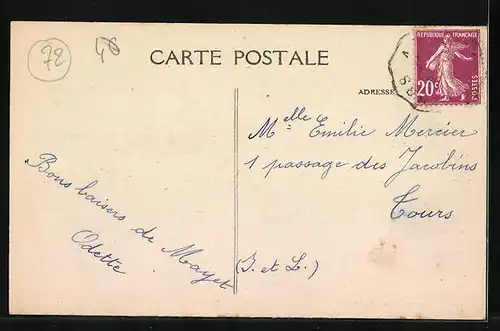 72
48
CARTE POSTALE
REPUBLIQUE FRANÇAISE
20c
POSTES
ADRESSE
Melle Emilie Mercier
1 passage des Jacobins
Tours
(I. et L.)
Bons baisers de Mayet
Odette